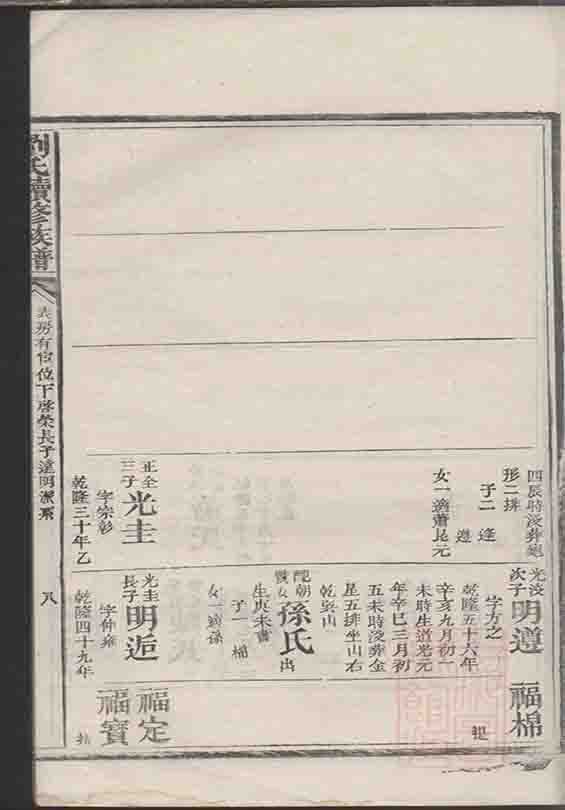 四辰時没葬總
形二排
子二 逢
遵
女一適蕭昆元
正全
三子
光圭
字宗彰
乾隆三十年乙
光没
次子
明遵
字方之
乾隆五十六年
辛亥九月初一
未時生道光元
年辛巳三月初
五未時没葬金
星五排坐山右
乾巽山
孫氏
出
生庚未書
子一 楠
女一適孫
光圭
長子
明逅
字仲雍
乾隆四十九年
福棉
福定
福寶
劉氏續修族譜
房有位下啓榮長子達明派系